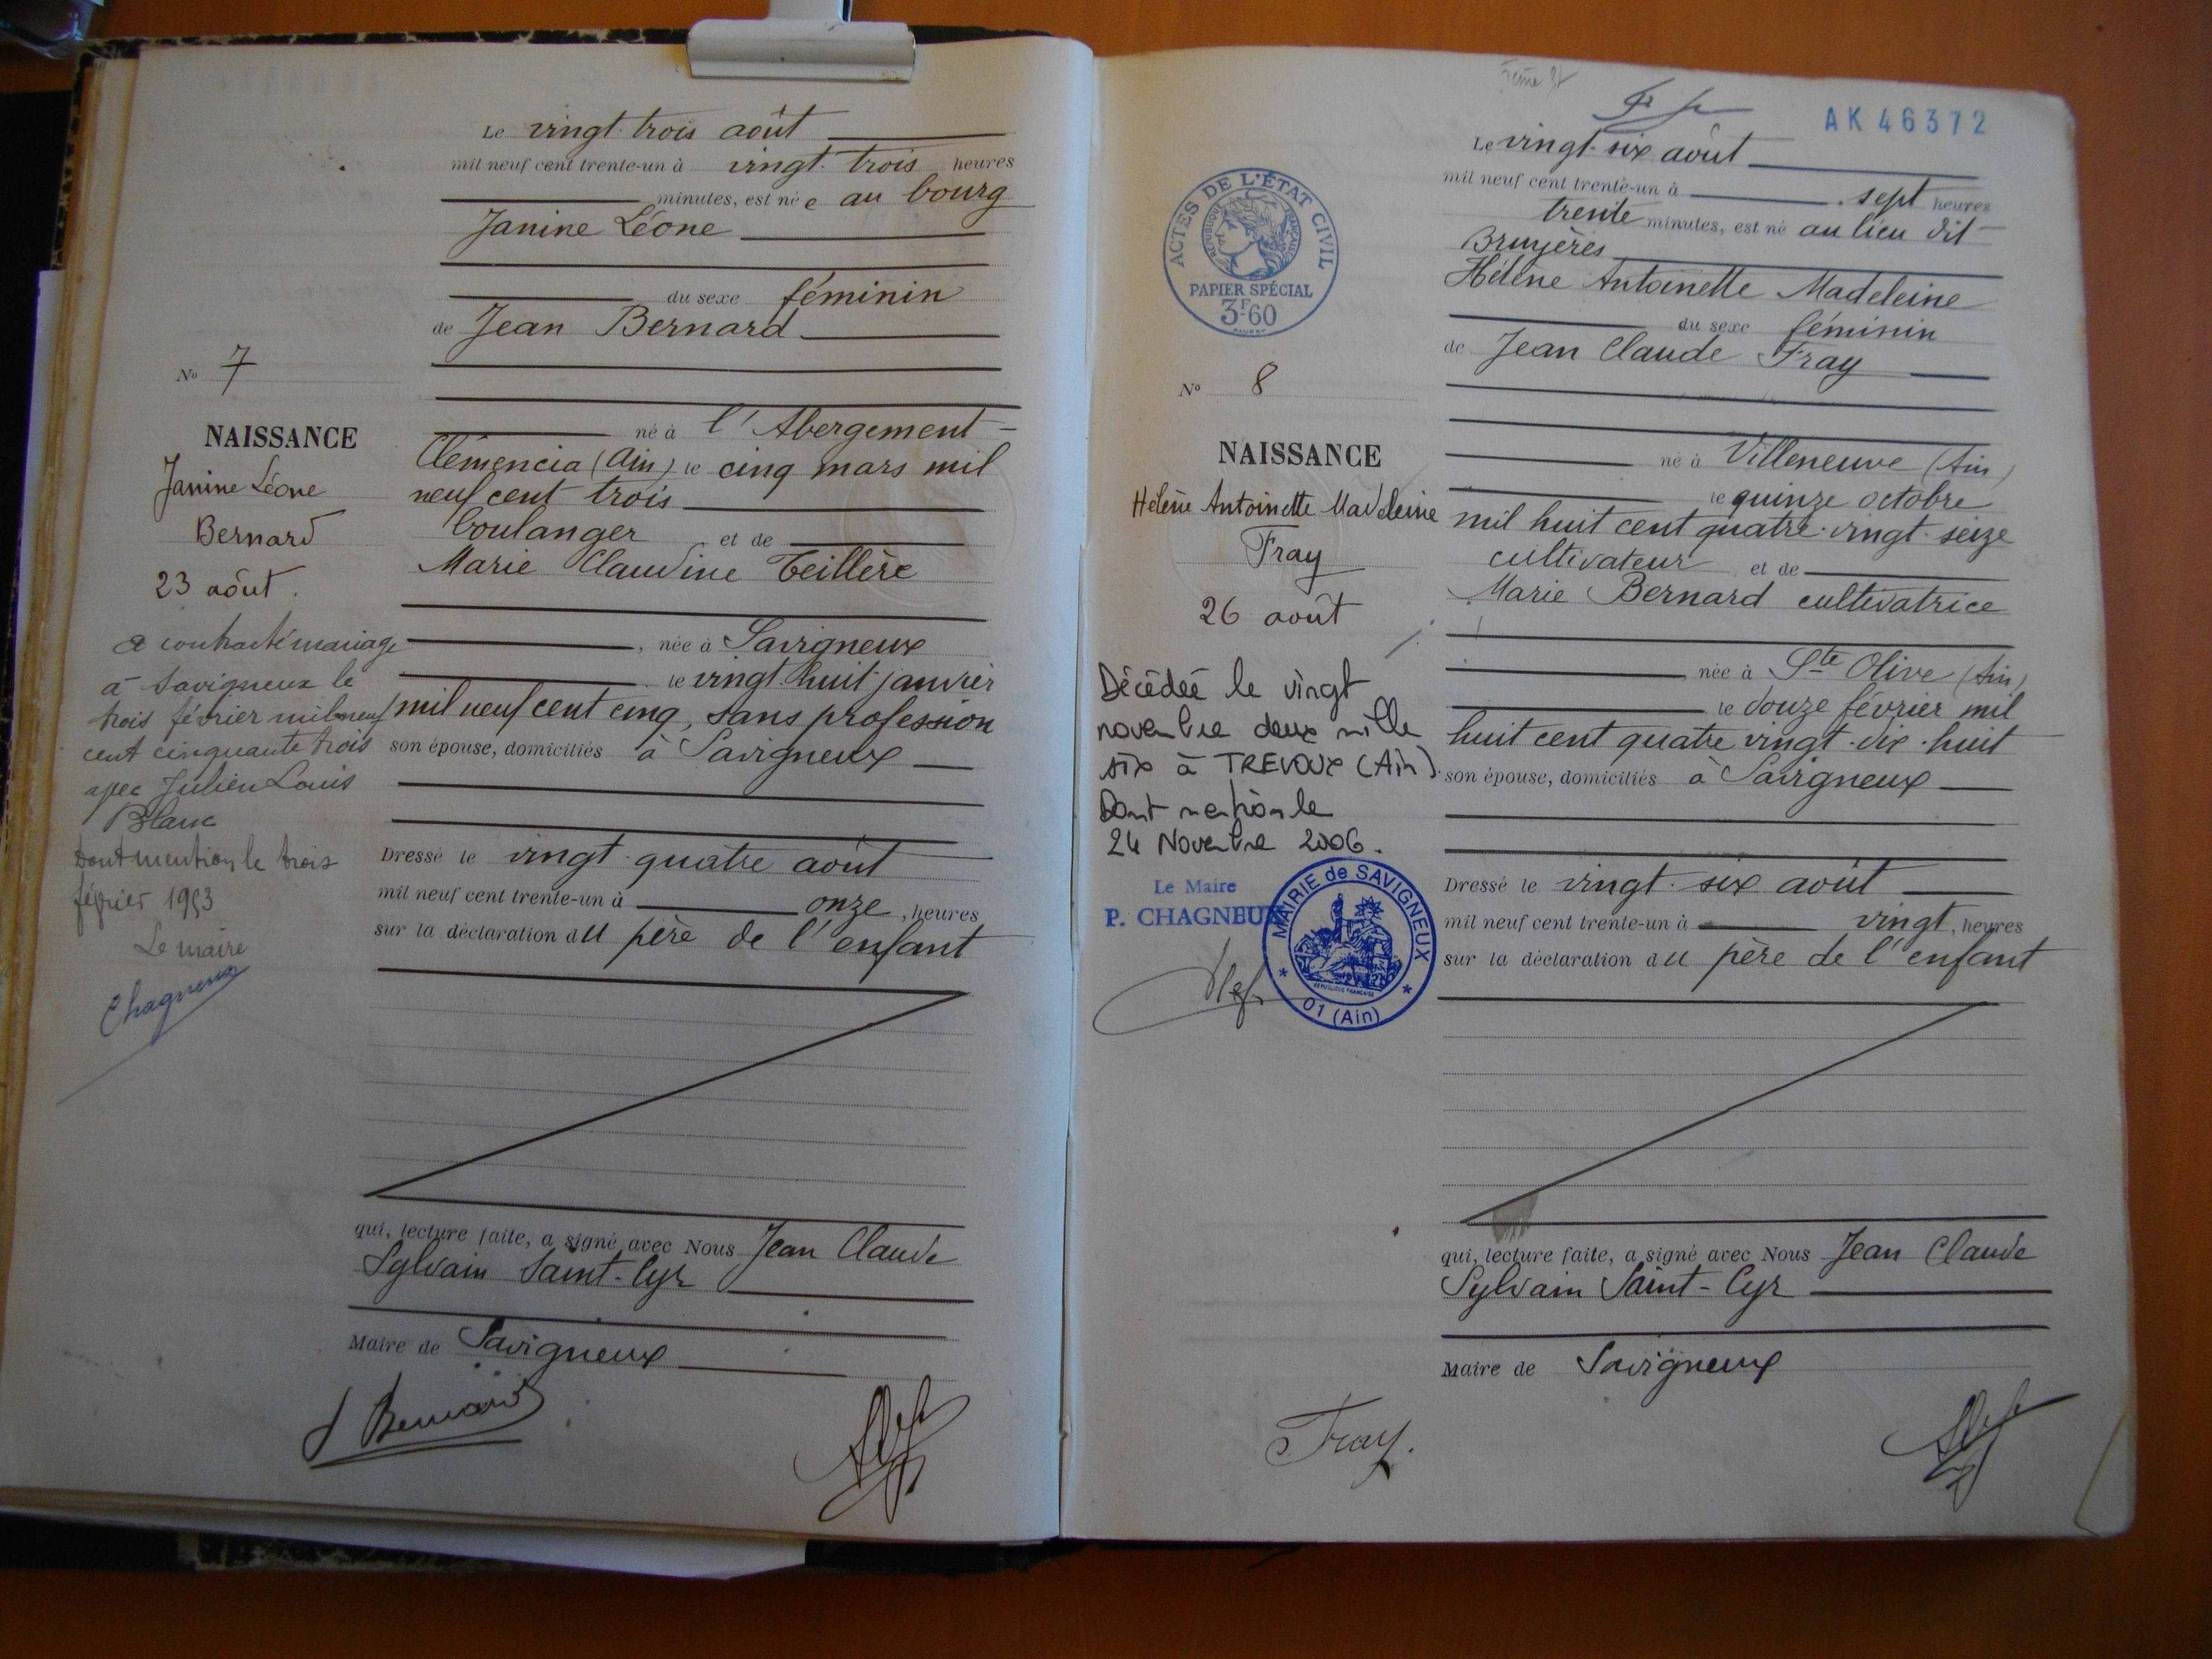 Le vingt-trois août
mil neuf cent trente-un à vingt-trois heures
minutes, est née au bourg
Janine Léone
du sexe féminin
de Jean Bernard
N° 7
NAISSANCE
Janine Léone
Bernard
23 août.
a contracté mariage
à Savigneux le
trois février mil neuf
cent cinquante trois
avec Julien Louis
Blanc
Dont mention le trois
février 1953
Le maire
Chagneux
né à l'Abergement-
Clémencia (Ain) le cinq mars mil
neuf cent trois
boulanger et de
Marie Claudine Teillère
, née à Savigneux
le vingt-huit janvier
mil neuf cent cinq, sans profession
son épouse, domiciliés à Savigneux
Dressé le vingt-quatre août
mil neuf cent trente-un à onze, heures
sur la déclaration du père de l'enfant
qui, lecture faite, a signé avec Nous Jean Claude
Sylvain Saint-Cyr
Maire de Savigneux
J Bernard
AK 46372
Le vingt-six août
mil neuf cent trente-un à sept heures
trente minutes, est né au lieu dit
Bruyères
Hélène Antoinette Madeleine
du sexe féminin
de Jean Claude Fray
ACTES DE L'ÉTAT CIVIL
RÉPUBLIQUE FRANÇAISE
PAPIER SPÉCIAL
3F60
N° 8
NAISSANCE
Hélène Antoinette Madeleine
Fray
26 août
Décédée le vingt
novembre deux mille
six à TREVOUX (Ain).
Dont mention le
24 Novembre 2006.
Le Maire
P. CHAGNEUX
MAIRIE de SAVIGNEUX
RÉPUBLIQUE FRANÇAISE
* 01 (Ain) *
né à Villeneuve (Ain)
le quinze octobre
mil huit cent quatre-vingt-seize
cultivateur et de
Marie Bernard cultivatrice
née à Ste Olive (Ain)
le douze février mil
huit cent quatre vingt-dix-huit
son épouse, domiciliés à Savigneux
Dressé le vingt-six août
mil neuf cent trente-un à vingt, heures
sur la déclaration du père de l'enfant
qui, lecture faite, a signé avec Nous Jean Claude
Sylvain Saint-Cyr
Maire de Savigneux
Fray.